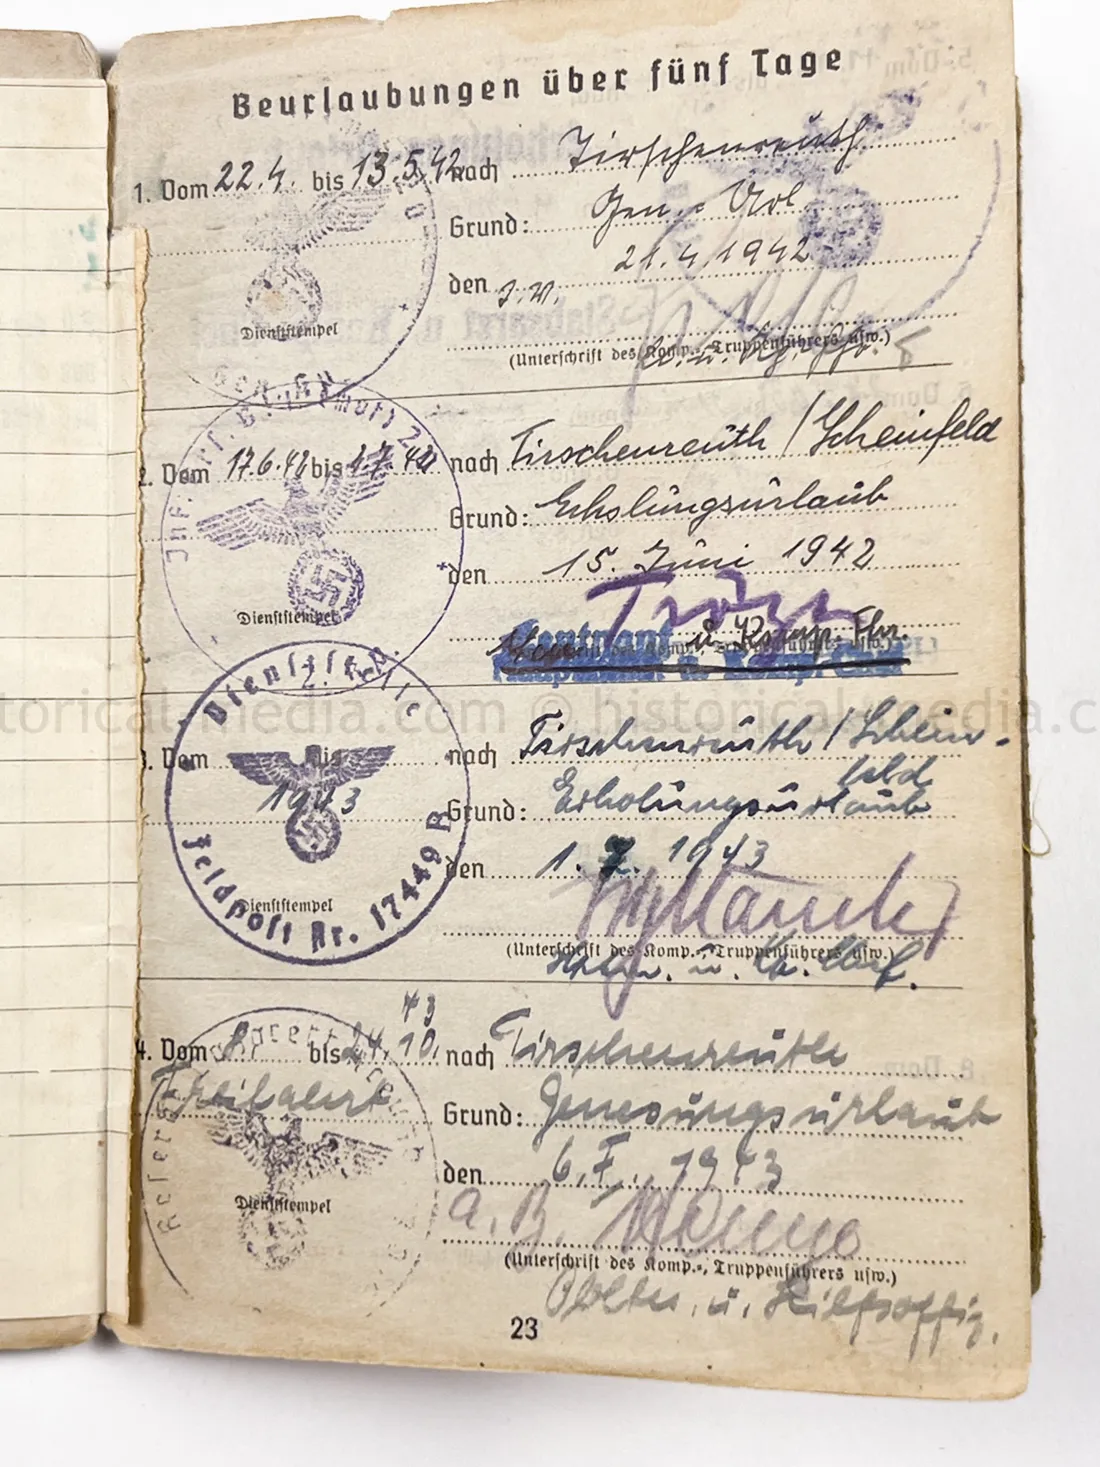 Beurlaubungen über fünf Tage
1. Vom 22.4. bis 13.5.42 nach Tirschenreuth
Grund: Gen.-Url
den 21.4.1942
I.V.
Dienststempel
(Unterschrift des Komp.-, Truppenführers usw.)
2. Vom 17.6.42 bis 1.7.42 nach Tirschenreuth / Scheinfeld
Grund: Erholungsurlaub
den 15. Juni 1942
Dienststempel
Leutnant u. Komp. Fhr.
3. Vom bis nach Tirschenreuth / Schein-
feld
1943 Grund: Erholungsurlaub
den 1. 7. 1943
Dienststelle
Feldpost Nr. 17449 B
Dienststempel
(Unterschrift des Komp.-, Truppenführers usw.)
43
4. Vom 8. bis 24.10. nach Tirschenreuth
Grund: Genesungsurlaub
den 6.X. 1943
a. B.
Dienststempel
(Unterschrift des Komp.-, Truppenführers usw.)
u. Hilfsoffiz.
23
historical-media.com © historical-media.com